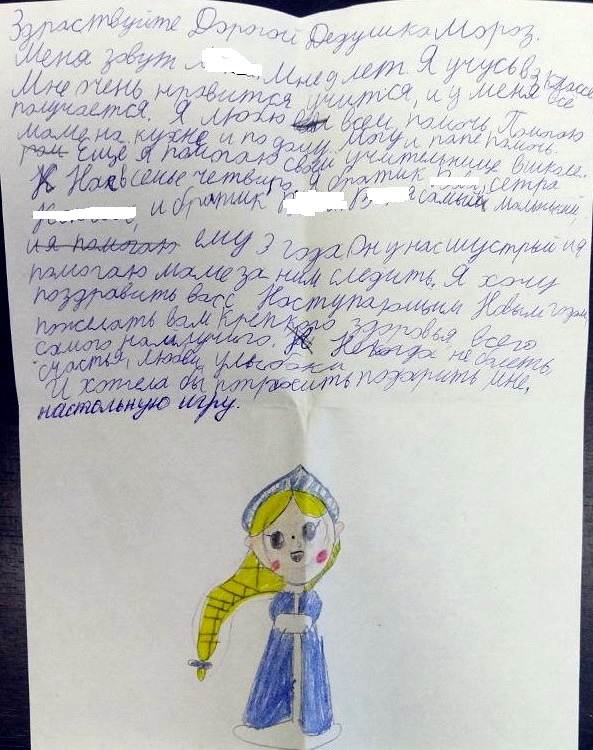 Здраствуйте Дорогой Дедушка Мороз.
Меня зовут Мне 9 лет. Я учусь в 3 классе
Мне очень нравится учится, и у меня все
получается. Я люблю всем помоч. Помогаю
маме на кухне и по дому. Могу и папе помочь.
Еще я помогаю своей учительнице в школе.
Нас в семье четверо, я братик сетра
и братик самый маленький,
и я помогаю ему 3 года Он у нас шустрый и я
помогаю маме за ним следить. Я хочу
поздравить васс Наступающим Новым годом
пожелать вам крепкого здоровья, всего
самого наилучшего. Некогда не болеть
счастья, любви, улыбоки
И хотела бы попросить подарить мне,
настольную игру.